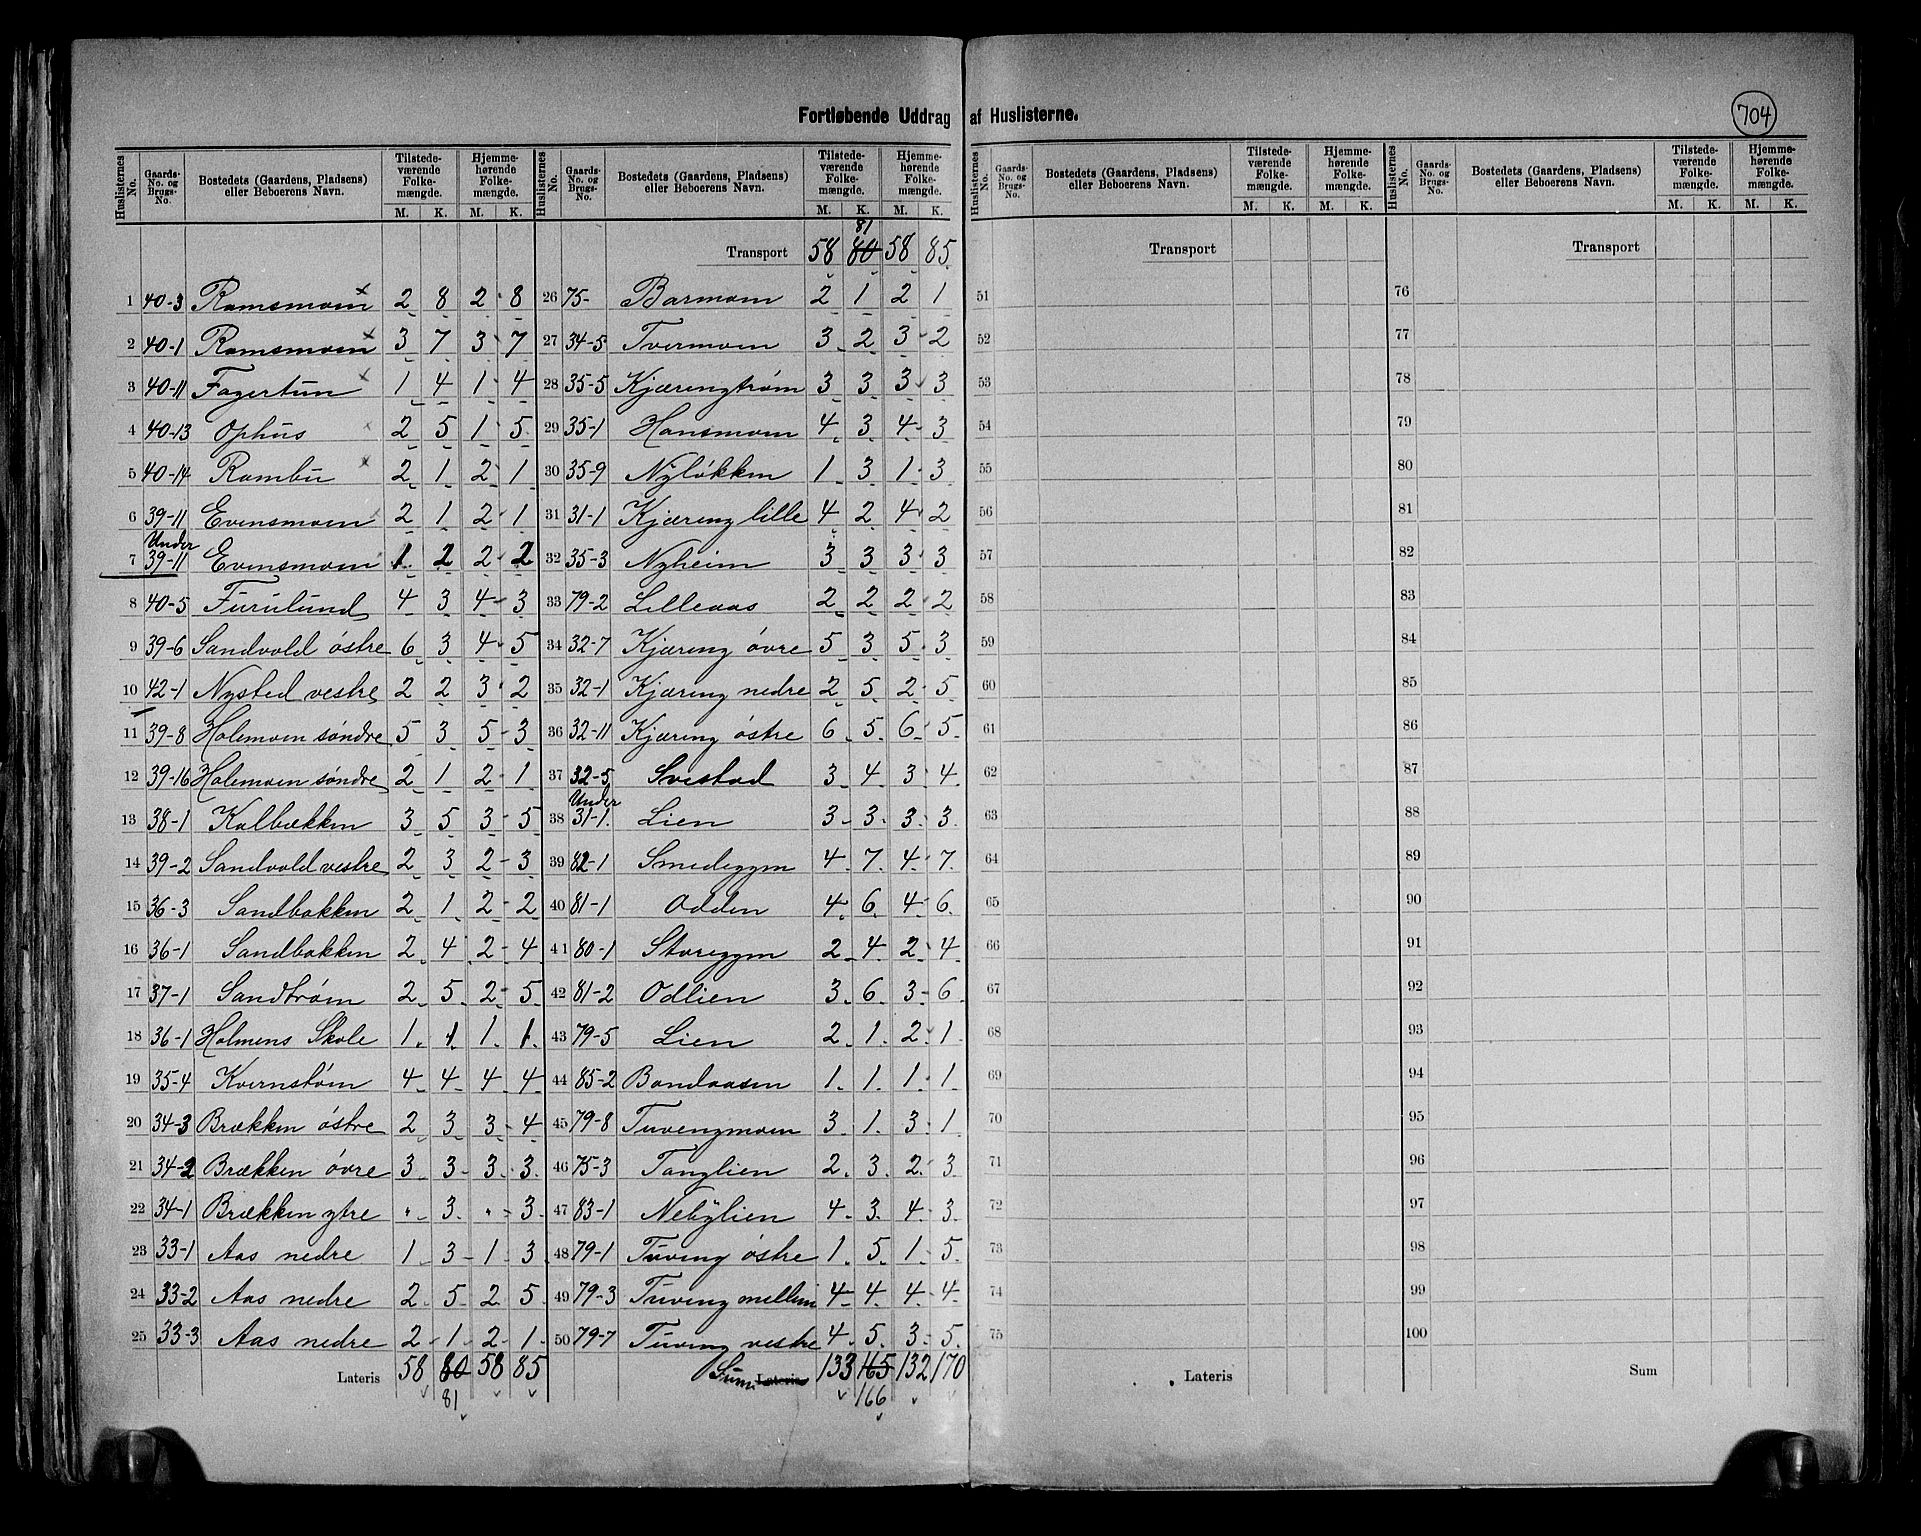 Fortløbende Uddrag af Huslisterne.
704
Huslisternes No. | Gaards-No. og Brugs-No. | Bostedets (Gaardens, Pladsens) eller Beboerens Navn. | Tilstedeværende Folkemængde. M. K. | Hjemmehørende Folkemængde. M. K.
1 40-3 Ramsmoen x 2 8 2 8
2 40-1 Ramsmoen x 3 7 3 7
3 40-11 Fagertun x 1 4 1 4
4 40-13 Ophus x 2 5 1 5
5 40-14 Rambu x 2 1 2 1
6 39-11 Evensmoen x 2 1 2 1
7 Under 39-11 Evensmoen 1 2 2 2
8 40-5 Furulund 4 3 4 3
9 39-6 Sandvold østre 6 3 4 5
10 42-1 Nysted vestre 2 2 3 2
11 39-8 Holemoen søndre 5 3 5 3
12 39-16 Holemoen søndre 2 1 2 1
13 38-1 Kalbækken 3 5 3 5
14 39-2 Sandvold vestre 2 3 2 3
15 36-3 Sandbakken 2 1 2 2
16 36-1 Sandbakken 2 4 2 4
17 37-1 Sandtrøen 2 5 2 5
18 36-1 Holmens Skole 1 1 1 1
19 35-4 Kvernstøen 4 4 4 4
20 34-3 Brækken østre 2 3 3 4
21 34-2 Brækken øvre 3 3 3 3
22 34-1 Brækken ytre " 3 " 3
23 33-1 Aas nedre 1 3 1 3
24 33-2 Aas nedre 2 5 2 5
25 33-3 Aas nedre 2 1 2 1
Lateris 58 80 58 85
81
Huslisternes No. | Gaards-No. og Brugs-No. | Bostedets (Gaardens, Pladsens) eller Beboerens Navn. | Tilstedeværende Folkemængde. M. K. | Hjemmehørende Folkemængde. M. K.
81
Transport 58 80 58 85
26 75- Barmoen 2 1 2 1
27 34-5 Tvermoen 3 2 3 2
28 35-5 Kjæringtrøen 3 3 3 3
29 35-1 Hansmoen 4 3 4 3
30 35-9 Nyløkken 1 3 1 3
31 31-1 Kjæreng lille 4 2 4 2
32 35-3 Nyheim 3 3 3 3
33 79-2 Lilleaas 2 2 2 2
34 32-7 Kjæreng øvre 5 3 5 3
35 32-1 Kjæreng nedre 2 5 2 5
36 32-11 Kjæreng østre 6 5 6 5
37 32-5 Svestad 3 4 3 4
38 Under 31-1 Lien 3 3 3 3
39 82-1 Smedeggen 4 7 4 7
40 81-1 Odden 4 6 4 6
41 80-1 Storeggen 2 4 2 4
42 81-2 Odlien 3 6 3 6
43 79-5 Lien 2 1 2 1
44 85-2 Bondaasen 1 1 1 1
45 79-8 Tuvengmoen 3 1 3 1
46 75-3 Tanglien 2 3 2 3
47 83-1 Nebylien 4 3 4 3
48 79-1 Tuveng østre 1 5 1 5
49 79-3 Tuveng mellem 4 4 4 4
50 79-7 Tuveng vestre 4 5 3 5
Sum Lateris 133 165 132 170
166
Huslisternes No. | Gaards-No. og Brugs-No. | Bostedets (Gaardens, Pladsens) eller Beboerens Navn. | Tilstedeværende Folkemængde. M. K. | Hjemmehørende Folkemængde. M. K.
Transport
51
52
53
54
55
56
57
58
59
60
61
62
63
64
65
66
67
68
69
70
71
72
73
74
75
Lateris
Huslisternes No. | Gaards-No. og Brugs-No. | Bostedets (Gaardens, Pladsens) eller Beboerens Navn. | Tilstedeværende Folkemængde. M. K. | Hjemmehørende Folkemængde. M. K.
Transport
76
77
78
79
80
81
82
83
84
85
86
87
88
89
90
91
92
93
94
95
96
97
98
99
100
Sum